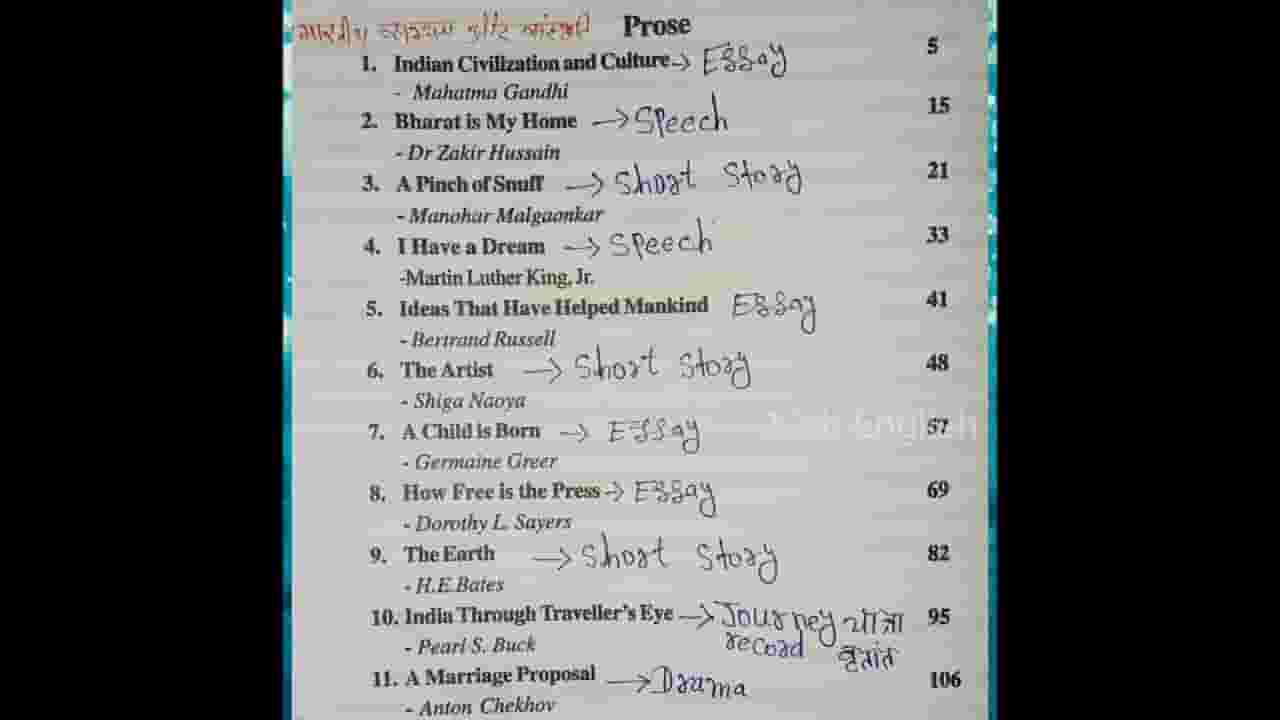 भारतीय सभ्यता और संस्कृति Prose
1. Indian Civilization and Culture -> Essay 5
- Mahatma Gandhi
2. Bharat is My Home -> Speech 15
- Dr Zakir Hussain
3. A Pinch of Snuff -> Short Story 21
- Manohar Malgaonkar
4. I Have a Dream -> Speech 33
-Martin Luther King, Jr.
5. Ideas That Have Helped Mankind Essay 41
- Bertrand Russell
6. The Artist -> Short Story 48
- Shiga Naoya
7. A Child is Born -> Essay 57
English
- Germaine Greer
8. How Free is the Press -> Essay 69
- Dorothy L. Sayers
9. The Earth -> Short Story 82
- H.E.Bates
10. India Through Traveller's Eye -> Journey यात्रा 95
record वृतांत
- Pearl S. Buck
11. A Marriage Proposal -> Drama 106
- Anton Chekhov